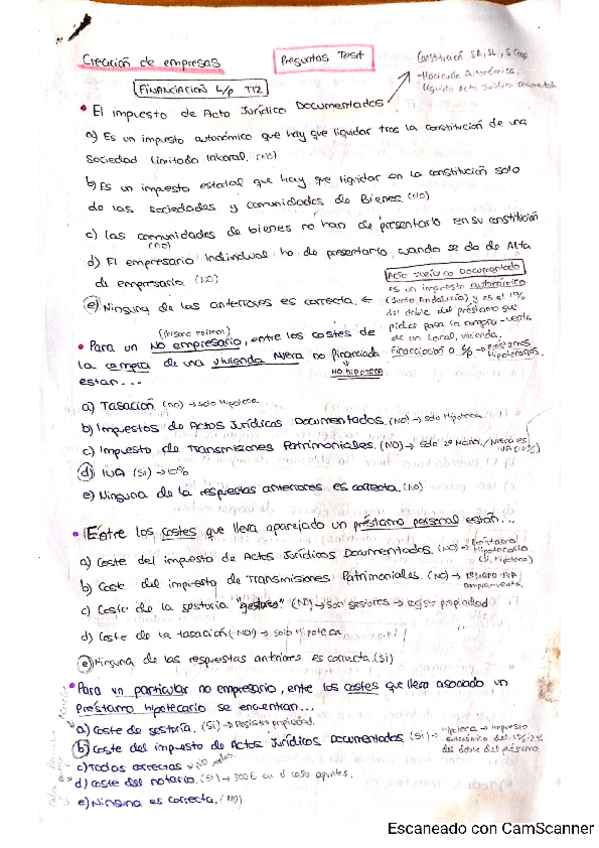 Creación de empresas
Preguntas Test
Constitución SA, SL, S Coop
- Hacienda autonómica.
liquida Acto Jurídico Documentado
FINANCIACIÓN L/p T12
• El impuesto de Acto Jurídico Documentados
a) Es un impuesto autonómico que hay que liquidar tras la constitución de una
sociedad limitada laboral. (NO)
b) Es un impuesto estatal que hay que liquidar en la constitución solo
de las sociedades y comunidades de Bienes. (NO)
c) Las comunidades de bienes no han de presentarlo en su constitución
(no)
d) El empresario individual ha de presentarlo, cuando se da de Alta
de empresario. (NO)
e) Ninguna de las anteriores es correcta. ←
Acto Jurídico Documentado
es un impuesto autonómico
(Junta Andalucía) y es el 1%
del doble del préstamo que
pides para la compra-venta
de un local, vivienda.
Financiación a L/p → préstamos
Hipotecarios.
(persona normal)
• Para un NO empresario, entre los costes de
la compra de una vivienda nueva no financiada
NO Hipoteca
están...
a) Tasación (no) → solo Hipoteca.
b) Impuestos de Actos Jurídicos Documentados. (NO) → solo Hipoteca
c) Impuesto de Transmisiones Patrimoniales. (NO) → solo 2ª Mano / Nuevo es
IVA (10%)
d) IVA (Si) → 10%
e) Ninguna de la respuestas anteriores es correcta. (NO)
• Entre los costes que lleva aparejado un préstamo personal están...
a) Coste del impuesto de Actos Jurídicos Documentados. (NO) → Préstamo
Hipotecario
(Si, Hipoteca)
b) Coste del impuesto de Transmisiones Patrimoniales. (NO) →
compra-venta.
c) Coste de la gestoria "gestores" (NO) → Son gestores → registro propiedad
d) Coste de la tasación (NO) → solo Hipoteca
e) Ninguna de las respuestas anteriores es correcta. (Si)
• Para un particular no empresario, entre los costes que lleva asociado un
Préstamo hipotecario se encuentran...
a) Coste de gestoría. (Si) → Registro propiedad.
b) Coste del impuesto de Actos Jurídicos Documentados. (Si) → Hipoteca → impuesto
autonómico del 1%-2%
del doble del préstamo.
c) Todas correctas
d) coste del notario. (Si) → 300€ en el caso apuntes.
e) Ninguna es correcta. (NO)
Escaneado con CamScanner